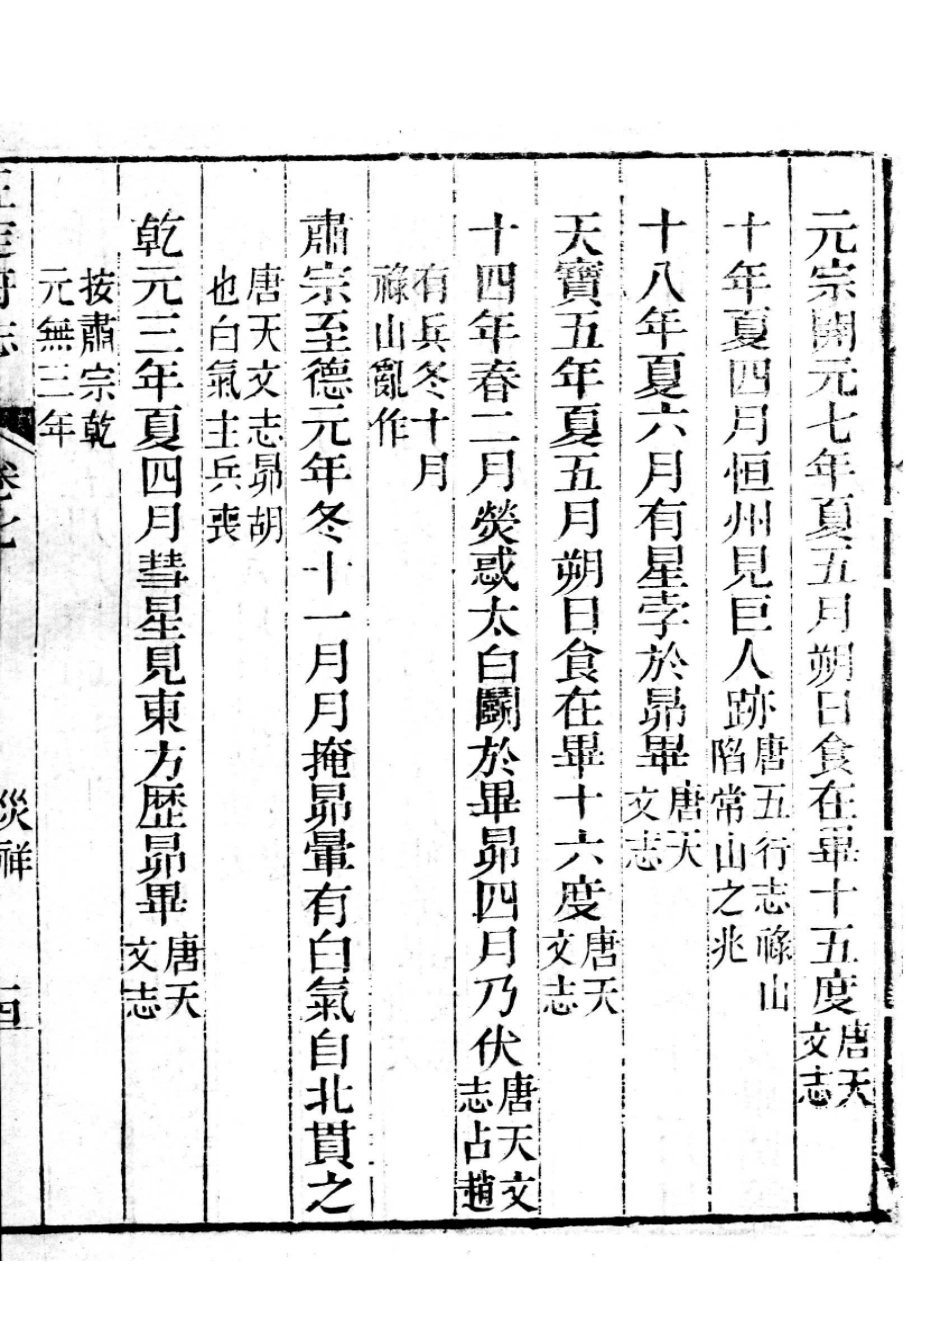 元宗開元七年夏五月朔日食在畢十五度唐天文志
十年夏四月恒州見巨人跡唐五行志祿山陷常山之兆
十八年夏六月有星孛於昴畢唐天文志
天寶五年夏五月朔日食在畢十六度唐天文志
十四年春二月熒惑太白鬭於畢昴四月乃伏唐天文志占趙
有兵冬十月祿山亂作
肅宗至德元年冬十一月月掩昴暈有白氣自北貫之
唐天文志昴胡也白氣主兵喪
乾元三年夏四月彗星見東方歴昴畢唐天文志
按肅宗乾元無三年
府志 卷七 災祥